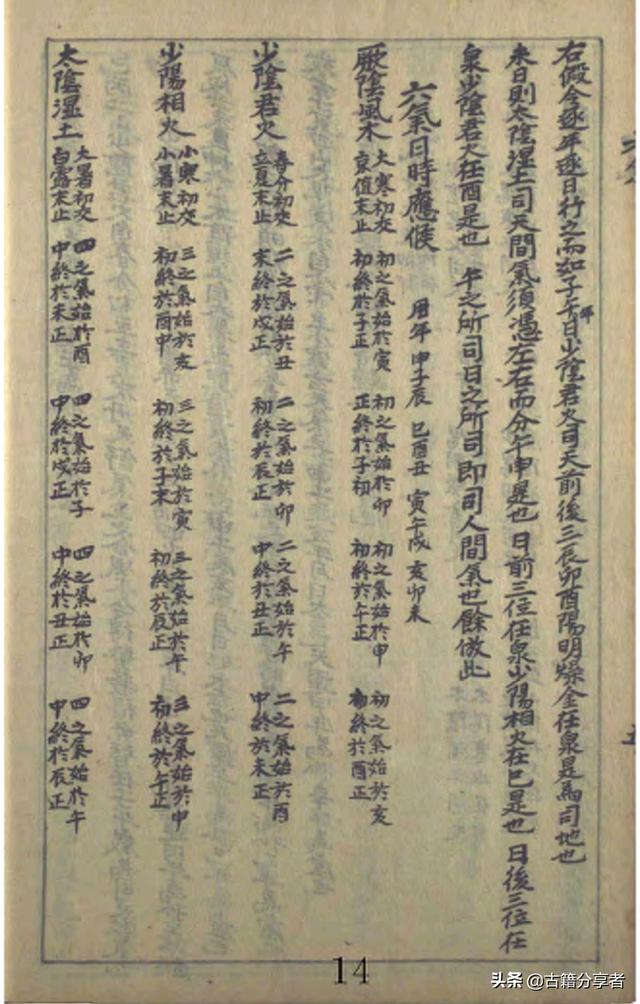 右假令逐年逐日行之而如子午年日少陰君火司天前後三辰卯酉陽明燥金在泉是為司地也
來日則太陰濕土司天間氣須憑左右而分午申是也日前三位在泉少陽相火在巳是也日後三位在
泉少陰君火在酉是也 年之所司日之所司即司人間氣也餘倣此
六氣日時應候 曆年 申子辰 巳酉丑 寅午戌 亥卯未
厥陰風木 大寒初交 初之氣始於寅 初之氣始於卯 初之氣始於申 初之氣始於亥
京值末止 初終於子正 正終於子初 初終於午正 初終於酉正
少陰君火 春分初交 二之氣始於丑 二之氣始於卯 二之氣始於午 二之氣始於酉
立夏末止 末終於戌正 初終於辰正 中終於丑正 中終於未正
少陽相火 小寒初交 三之氣始於亥 三之氣始於寅 三之氣始於午 三之氣始於申
小暑末止 初終於酉中 初終於子末 初終於辰正 初終於午正
太陰濕土 大暑初交 四之氣始於酉 四之氣始於子 四之氣始於卯 四之氣始於午
白露末止 中終於未正 中終於戌正 中終於丑正 中終於辰正
14
头条 @古籍分享者